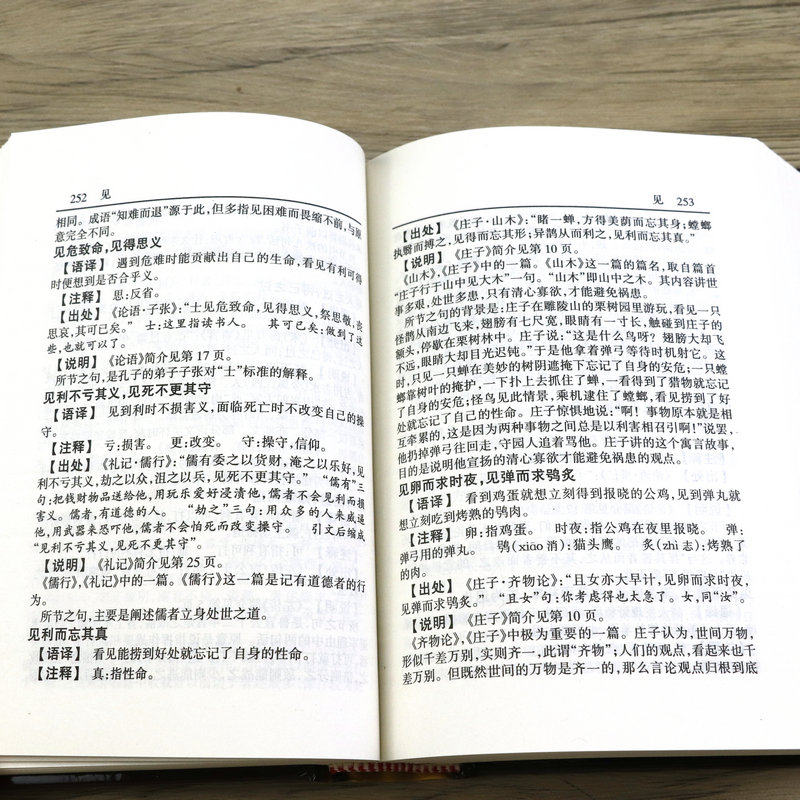 252 见
相同。成语“知难而退”源于此,但多指见困难而畏缩不前,与原
意完全不同。
见危致命,见得思义
【语译】 遇到危难时能贡献出自己的生命,看见有利可得
时便想到是否合乎义。
【注释】 思:反省。
【出处】《论语·子张》:“士见危致命,见得思义,祭思敬,丧
思哀,其可已矣。” 士:这里指读书人。 其可已矣:做到了这
些,也就可以了。
【说明】《论语》简介见第17页。
所节之句,是孔子的弟子子张对“士”标准的解释。
见利不亏其义,见死不更其守
【语译】 见到利时不损害义,面临死亡时不改变自己的操
守。
【注释】 亏:损害。 更:改变。 守:操守,信仰。
【出处】《礼记·儒行》:“儒有委之以货财,淹之以乐好,见
利不亏其义,劫之以众,沮之以兵,见死不更其守。” “儒有”三
句:把钱财物品送给他,用玩乐爱好浸渍他,儒者不会见利而损
害义。儒者,有道德的人。 “劫之”三句:用众多的人来威逼
他,用武器来恐吓他,儒者不会怕死而改变操守。 引文后缩成
“见利不亏其义,见死不更其守”。
【说明】《礼记》简介见第25页。
《儒行》,《礼记》中的一篇。《儒行》这一篇是记有道德者的行
为。
所节之句,主要是阐述儒者立身处世之道。
见利而忘其真
【语译】 看见能捞到好处就忘记了自身的性命。
【注释】 真:指性命。
见 253
【出处】《庄子·山木》:“睹一蝉,方得美荫而忘其身;螳螂
执翳而搏之,见得而忘其形;异鹊从而利之,见利而忘其真。”
【说明】《庄子》简介见第10页。
《山木》,《庄子》中的一篇。《山木》这一篇的篇名,取自篇首
“庄子行于山中见大木”一句。“山木”即山中之木。其内容讲世
事多艰,处世多患,只有清心寡欲,才能避免祸患。
所节之句的背景是:庄子在雕陵山的栗树园里游玩,看见一只
怪鹊从南边飞来,翅膀有七尺宽,眼睛有一寸长,触碰到庄子的
额头,停歇在栗树林中。庄子说:“这是什么鸟呀?翅膀大却飞
不远,眼睛大却目光迟钝。”于是他拿着弹弓等待时机射它。这
时,只见一只蝉在美妙的树阴遮掩下忘记了自身的安危;一只螳
螂靠树叶的掩护,一下扑上去抓住了蝉,一看得到了猎物就忘记
了自身的安危;怪鸟见此情景,乘机逮住了螳螂,看见捞到了好
处就忘记了自己的性命。庄子惊惧地说:“啊!事物原本就是相
互牵累的,这是因为两种事物之间总是以利害相召引啊!”说罢,
他扔掉弹弓往回走,守园人追着骂他。庄子讲的这个寓言故事,
目的是说明他宣扬的清心寡欲才能避免祸患的观点。
见卵而求时夜,见弹而求鸮炙
【语译】 看到鸡蛋就想立刻得到报晓的公鸡,见到弹丸就
想立刻吃到烤熟的鸮肉。
【注释】 卵:指鸡蛋。 时夜:指公鸡在夜里报晓。 弹:
弹弓用的弹丸。 鸮(xiāo消):猫头鹰。 炙(zhì志):烤熟了
的肉。
【出处】《庄子·齐物论》:“且女亦大早计,见卵而求时夜,
见弹而求鸮炙。” “且女”句:你考虑得也太急了。女,同“汝”。
【说明】《庄子》简介见第10页。
《齐物论》,《庄子》中极为重要的一篇。庄子认为,世间万物,
形似千差万别,实则齐一,此谓“齐物”;人们的观点,看起来也千
差万别。但既然世间的万物是齐一的,那么言论观点归根到底